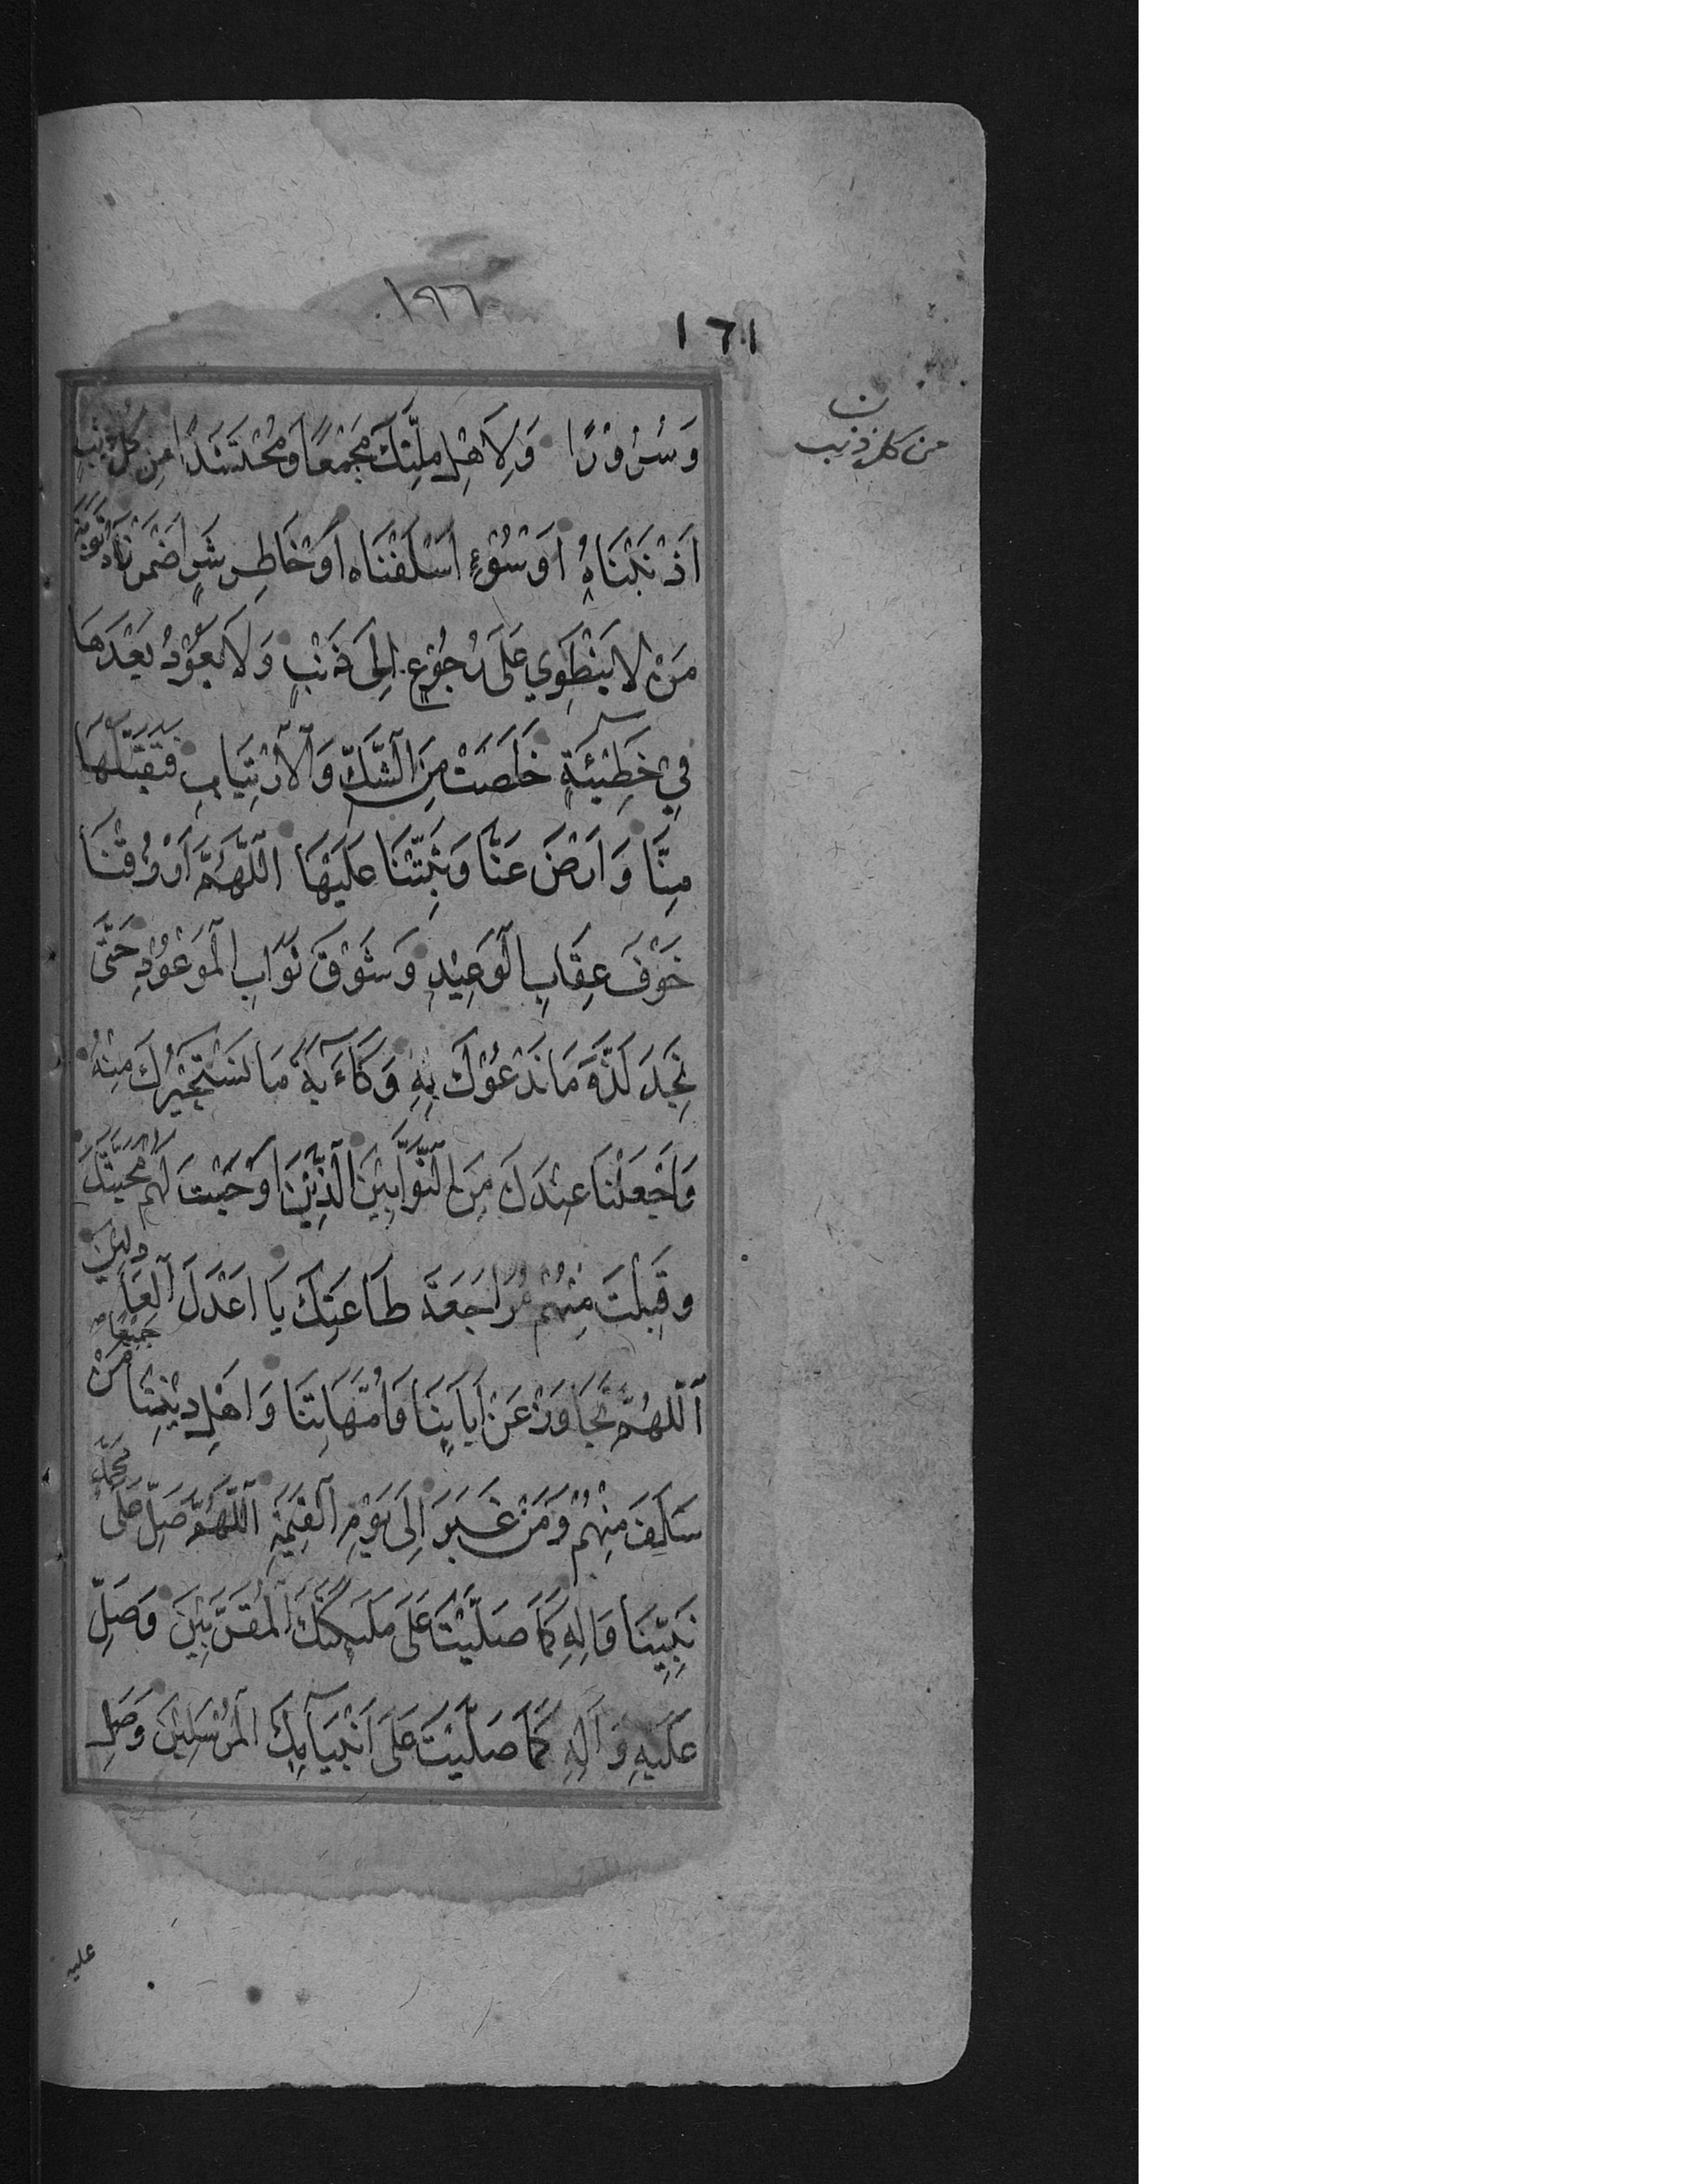 ١٩٦
١٦١
وَسُرُوْرًا وَلِاَهْلِ مِلَّتِكَ مَجْمَعًا وَمُحْتَشَدًا مِن كُلِّ ذَنْبٍ
ن
من كل ذنب
اَذْنَبْنَاهُ اَوْ سُوْءٍ اَسْلَفْنَاه اَوْ خَاطِرِ شَرٍّ اَضْمَرْنَاهُ تَوْبَةَ
مَنْ لا يَنْطَوِي عَلَى رُجُوْعٍ اِلَى ذَنْبٍ وَلَا يَعُوْدُ بَعْدَهَا
فِي خَطِيْئَةٍ خَلَصَتْ مِنَ الشَّكِّ وَالْاِرْتِيَابِ فَتَقَبَّلْهَا
مِنَّا وَارْضَ عَنَّا وَثَبِّتْنَا عَلَيْهَا اَللّٰهُمَّ ارْزُقْنَا
خَوْفَ عِقَابِ الْوَعِيْدِ وَشَوْقَ ثَوَابِ الْمَوْعُوْدِ حَتَّى
نَجِدَ لَذَّةَ مَا نَدْعُوْكَ بِهِ وَكَاٰبَةَ مَا نَسْتَجِيْرُكَ مِنْهُ
وَاجْعَلْنَا عِنْدَكَ مِنَ التَّوَّابِيْنَ الَّذِيْنَ اَوْجَبْتَ لَهُمْ مَحَبَّتَكَ
وَقَبِلْتَ مِنْهُمْ مُرَاجَعَةَ طَاعَتِكَ يَا اَعْدَلَ الْعَادِلِيْنَ
اَللّٰهُمَّ تَجَاوَزْ عَنْ اٰبَائِنَا وَاُمَّهَاتِنَا وَاَهْلِ دِيْنِنَا جَمِيْعًا مَنْ
سَلَفَ مِنْهُمْ وَمَنْ غَبَرَ اِلَى يَوْمِ الْقِيٰمَةِ اَللّٰهُمَّ صَلِّ عَلَى مُحَمَّدٍ
نَبِيِّنَا وَاٰلِهِ كَمَا صَلَّيْتَ عَلَى مَلٰئِكَتِكَ الْمُقَرَّبِيْنَ وَصَلِّ
عَلَيْهِ وَاٰلِهِ كَمَا صَلَّيْتَ عَلَى اَنْبِيَآئِكَ الْمُرْسَلِيْنَ وَصَلِّ
عليه